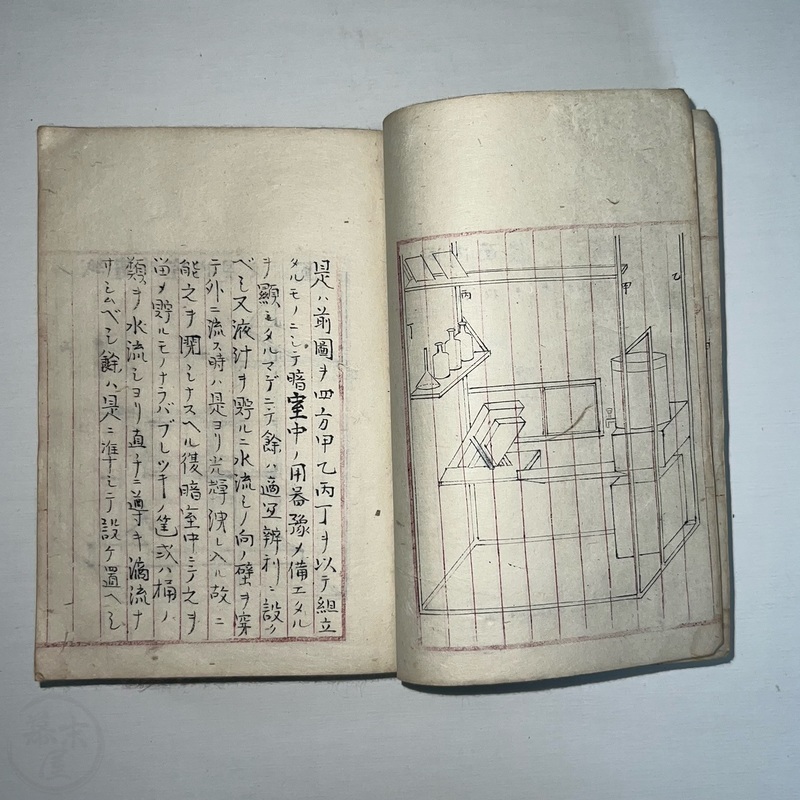 甲
乙
丙
丁
是ハ前圖ヲ四方甲乙丙丁ヲ以テ組立
タルモノニシテ暗室中ノ用器豫メ備エタル
ヲ顯シタルマデニテ餘ハ適宜辨利ニ設ク
ベシ又液汁ヲ貯ルニ水流シノ向ノ壁ヲ穿
テ外ニ流ス時ハ是ヨリ光輝洩レ入ル故ニ
能之ヲ閉シナスヘル復暗室中ニテ之ヲ
溜メ貯ルモノナラバブレツキノ筐或ハ桶ノ
類ヲ水流シヨリ直チニ導キ滴流ナ
サシムベシ餘ハ是ニ准ヤシテ設ケ置ヘシ